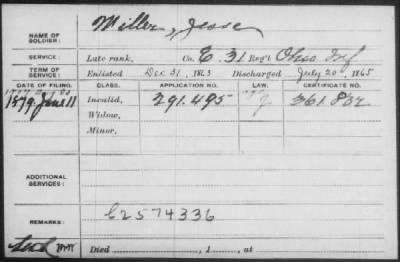 Miller, Jesse
NAME OF SOLDIER:
SERVICE: Late rank, Co. E. 31 Reg't Ohio Inf
TERM OF SERVICE: Enlisted Dec 31, 1863 Discharged July 20, 1865
DATE OF FILING. CLASS. APPLICATION NO. LAW. CERTIFICATE NO.
1879 June 11 Invalid, 291.495 361.832
Widow,
Minor,
ADDITIONAL SERVICES:
REMARKS: C2574336
Died , 1 , at